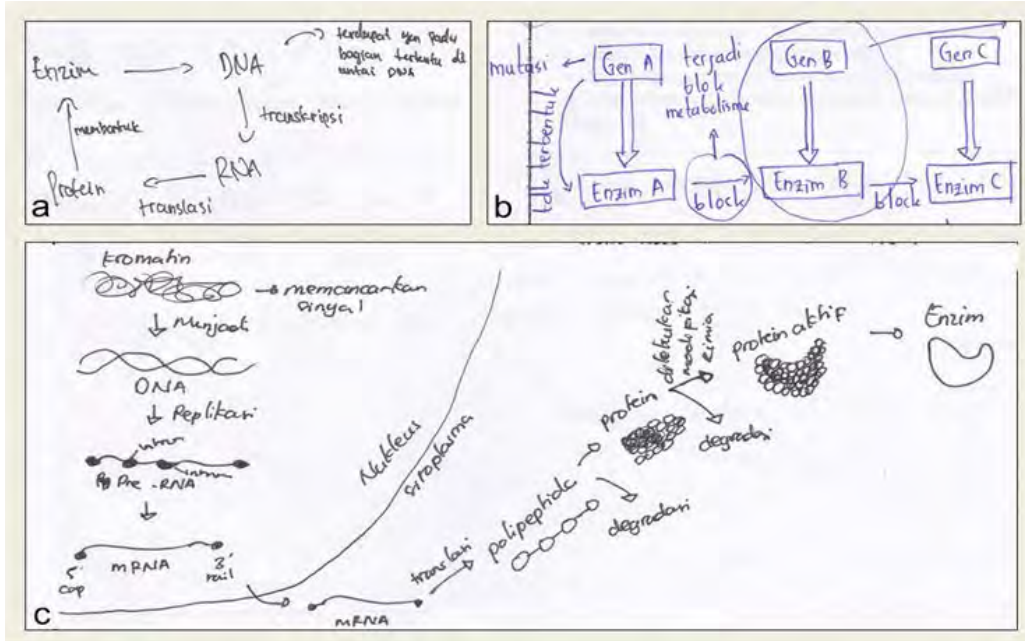 Enzim
DNA
terdapat gen pada
bagian tertentu di
untai DNA
transkripsi
RNA
translasi
Protein
membentuk
a
mutasi
Gen A
terjadi
blok
metabolisme
Gen B
Gen C
terbentuk
Enzim A
block
Enzim B
block
Enzim C
b
kromatin
memancarkan
sinyal
DNA
Replikasi
intron
intron
Pre-RNA
mRNA
5'
cap
3'
Nukleus
sitoplasma
mRNA
translasi
polipeptida
degradasi
protein
dilakukan
modifikasi
kimia
degradasi
protein aktif
Enzim
c